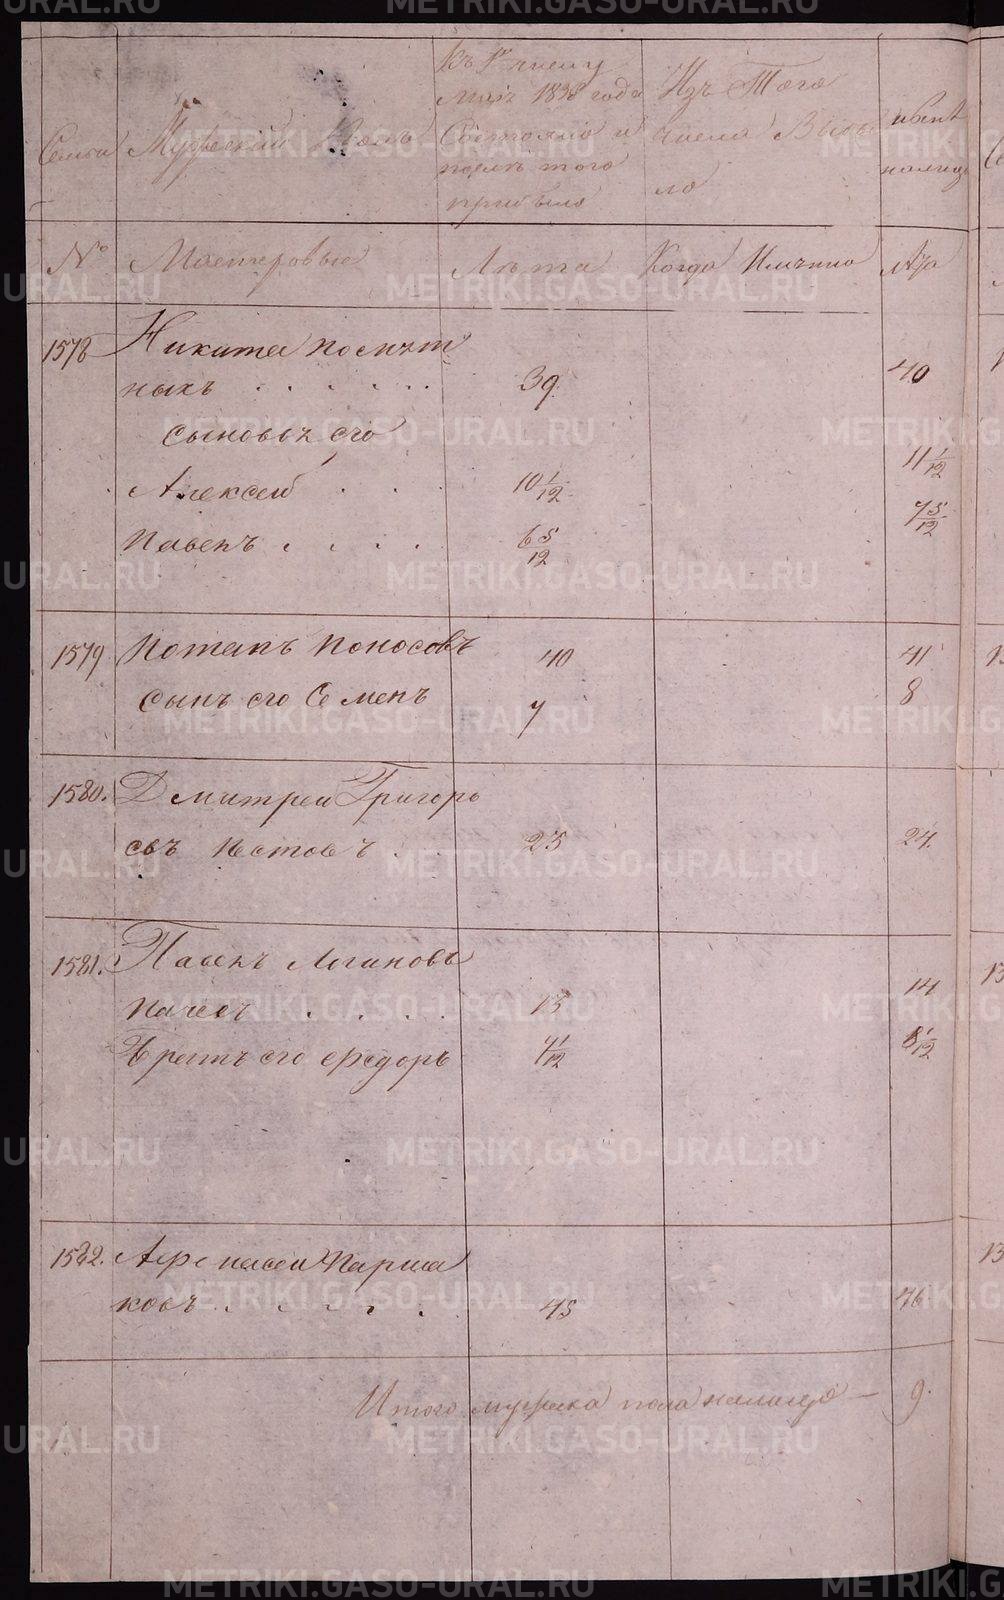 Семьи Мужескій Полъ
Къ 1му числу
Маія 1838 года
Состояло и
послѣ того
прибыло
Изъ Того
числа Выбы
ло
нынѣ
на лицо
№ Мастеровые Лѣта Когда Имянно Лѣта
1578 Никита
ныхъ . . . . . . 39. 40
сыновья его
Алексей . . . 10 1/12 11 1/12
Павелъ . . . . 6 5/12 7 5/12
1579 Потапъ Поносовъ 40 41
Сынъ его Семенъ 7 8
1580. Дмитреи Григорь
евъ 23 24.
1581. Павелъ Логиновъ
13 14
Братъ его Федоръ 7 1/12 8 1/12
1582. Афонасеи Парша
ковъ . . . . . 45 46
Итого мужеска пола налицо — 9.
METRIKI.GASO-URAL.RU